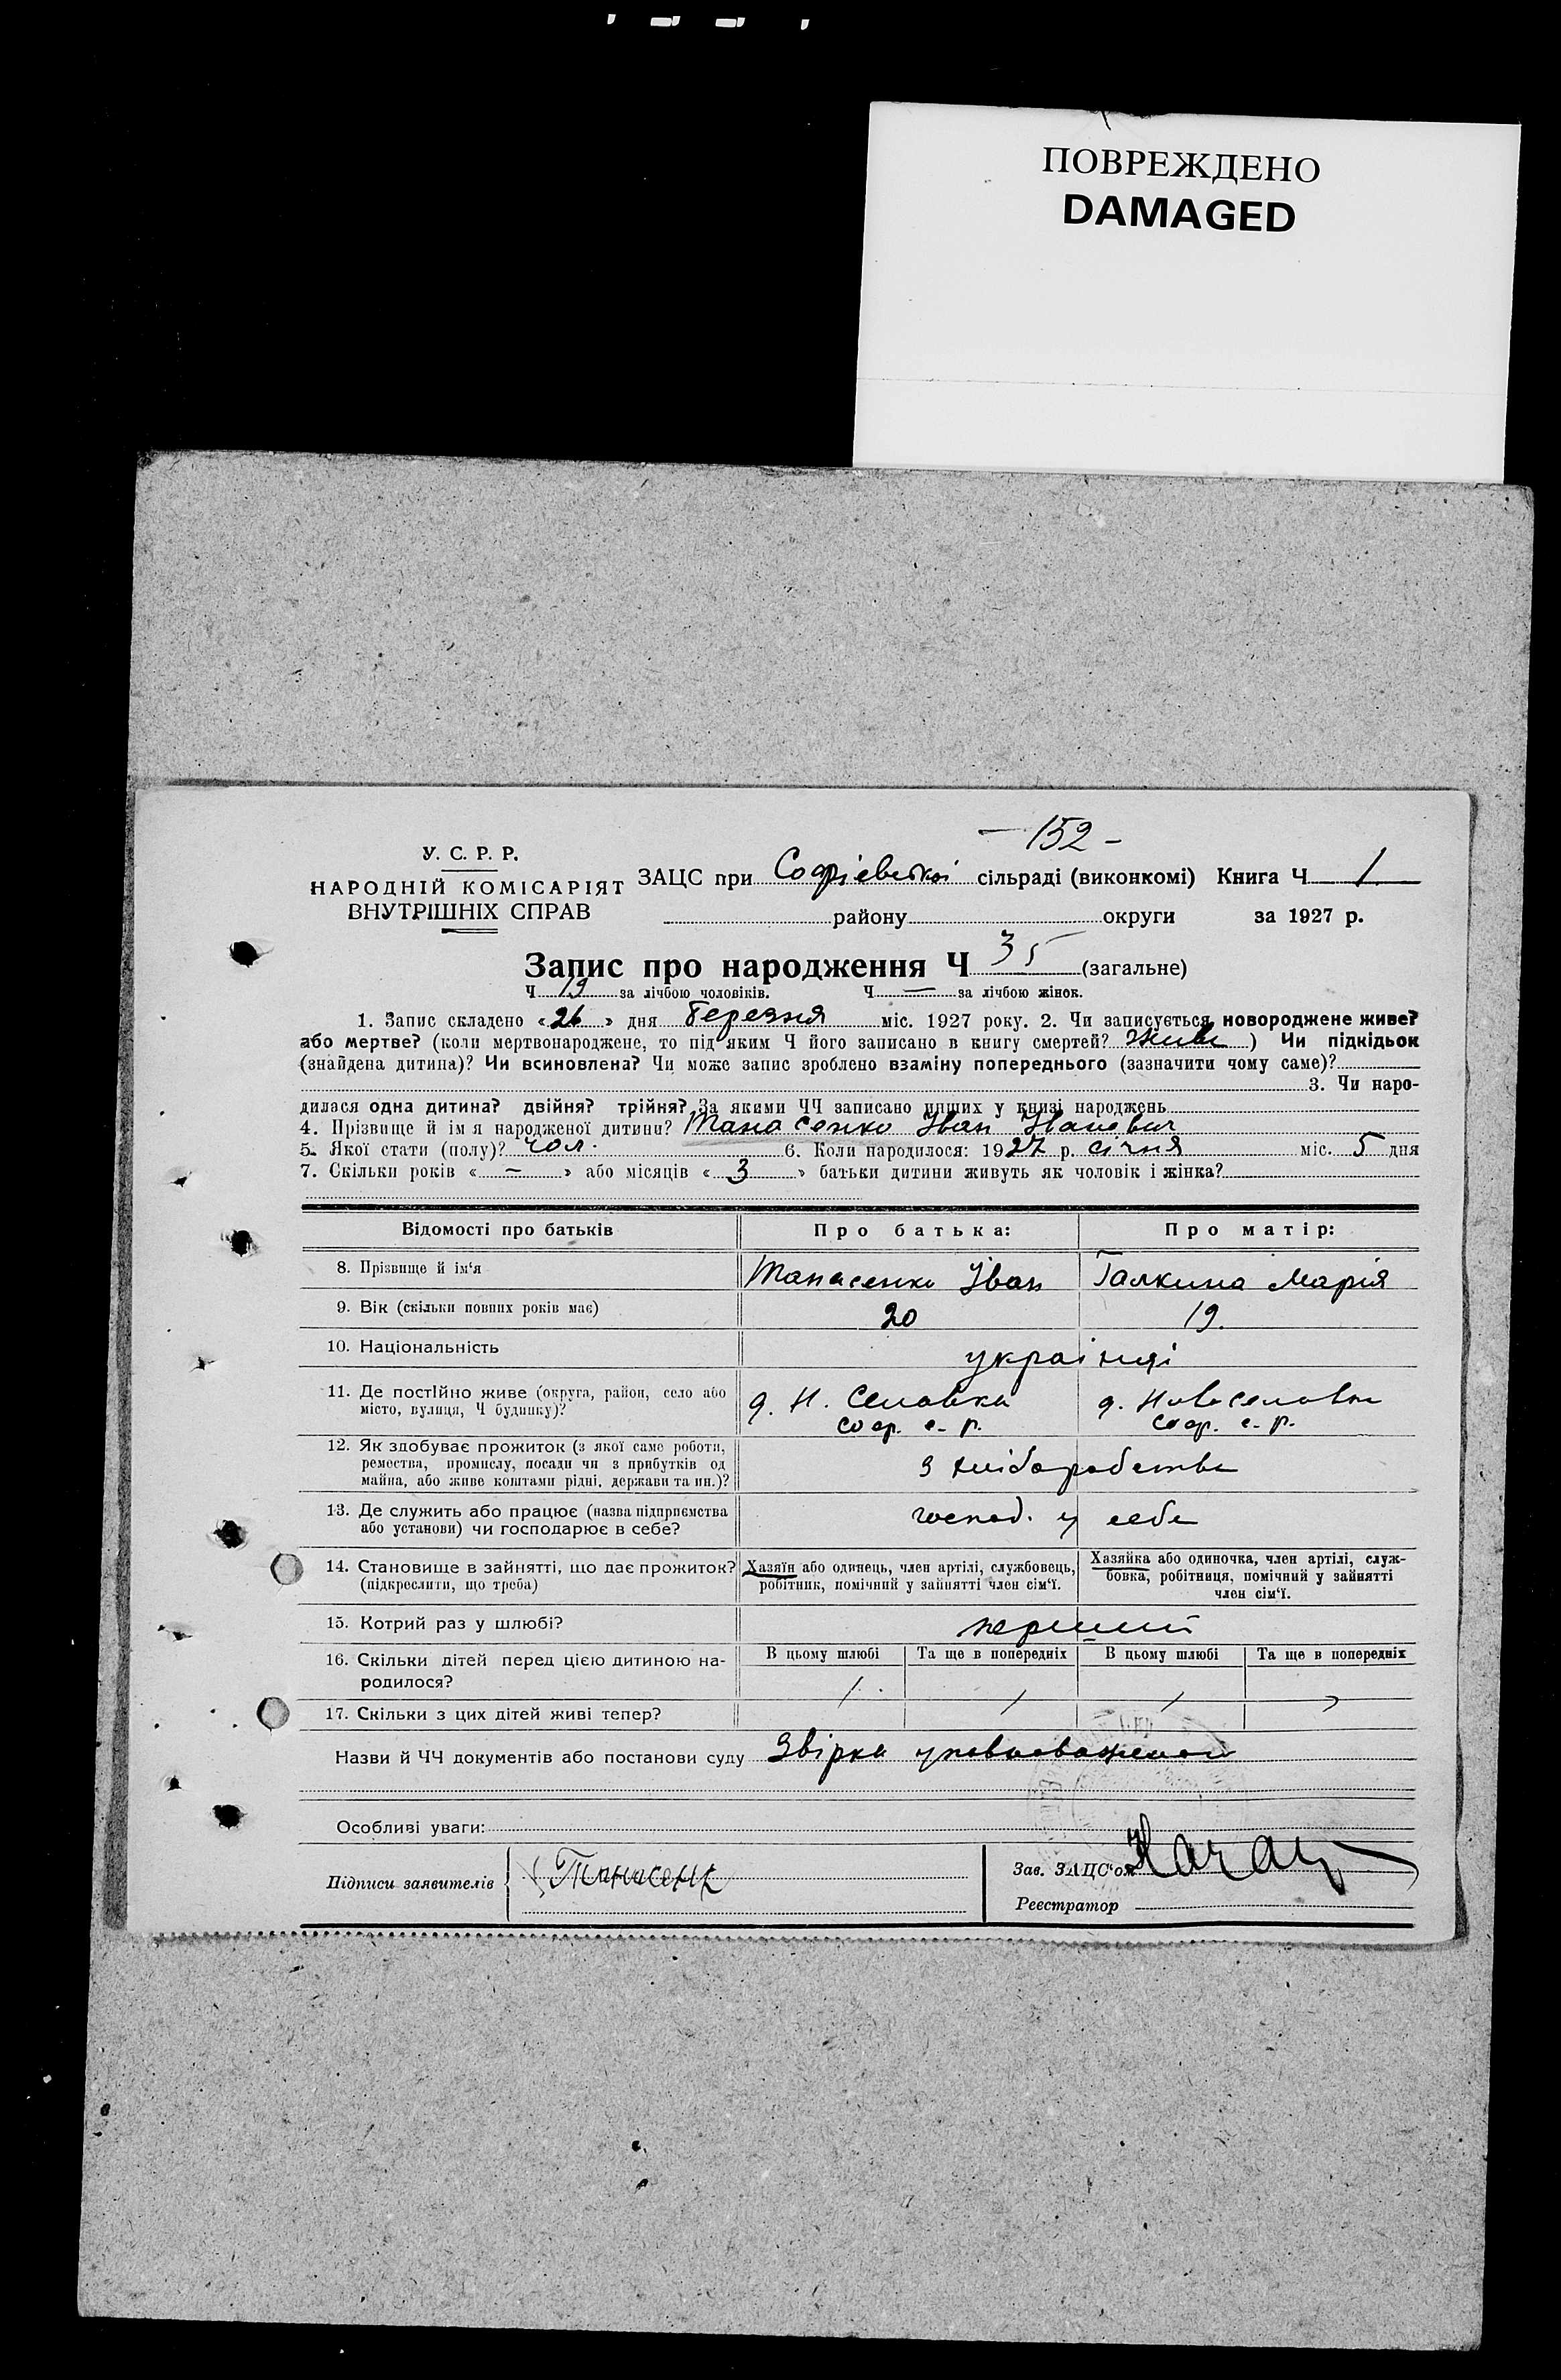 ПОВРЕЖДЕНО
DAMAGED
— 152 —
У. С. Р. Р.
НАРОДНІЙ КОМІСАРІЯТ
ВНУТРІШНІХ СПРАВ
ЗАЦС при Софіевській сільраді (виконкомі) Книга Ч 1
району округи за 1927 р.
Запис про народження Ч 35 (загальне)
Ч 19 за лічбою чоловіків. Ч — за лічбою жінок.
1. Запис складено «26» дня березня міс. 1927 року. 2. Чи записується новороджене живе?
або мертве? (коли мертвонароджене, то під яким Ч його записано в книгу смертей? живе ) Чи підкідьок
(знайдена дитина)? Чи всиновлена? Чи може запис зроблено взаміну попереднього (зазначити чому саме)?
3. Чи наро-
дилася одна дитина? двійня? трійня? За якими ЧЧ записано инших у книзі народжень
4. Прізвище й ім я народженої дитини? Танасенко Іван Іванович
5. Якої стати (полу)? чол. 6. Коли народилося: 1927 р. січня міс. 5 дня
7. Скільки років « — » або місяців « 3 » батьки дитини живуть як чоловік і жінка?
Відомості про батьків Про батька: Про матір:
8. Прізвище й ім'я Танасенко Іван Галкина Марія
9. Вік (скільки повних років має) 20 19.
10. Національність українці
11. Де постійно живе (округа, район, село або
місто, вулиця, Ч будинку)? д. Н. Селовка д. Новоселовка
Соф. с. р. Соф. с. р.
12. Як здобуває прожиток (з якої саме роботи,
ремества, промислу, посади чи з прибутків од
майна, або живе коштами рідні, держави та ин.)? З хліборобства
13. Де служить або працює (назва підприємства
або установи) чи господарює в себе? господ. у себе
14. Становище в зайнятті, що дає прожиток?
(підкреслити, що треба)
Хазяїн або одинець, член артілі, службовець,
робітник, помічний у зайнятті член сім'ї.
Хазяйка або одиночка, член артілі, служ-
бовка, робітниця, помічний у зайнятті
член сім'ї.
15. Котрий раз у шлюбі? перший
16. Скільки дітей перед цією дитиною на-
родилося?
В цьому шлюбі Та ще в попередніх В цьому шлюбі Та ще в попередніх
17. Скільки з цих дітей живі тепер?
Назви й ЧЧ документів або постанови суду Звірка
Особливі уваги:
Підписи заявителів Танасенк
Зав. ЗАЦС'ом
Реєстратор